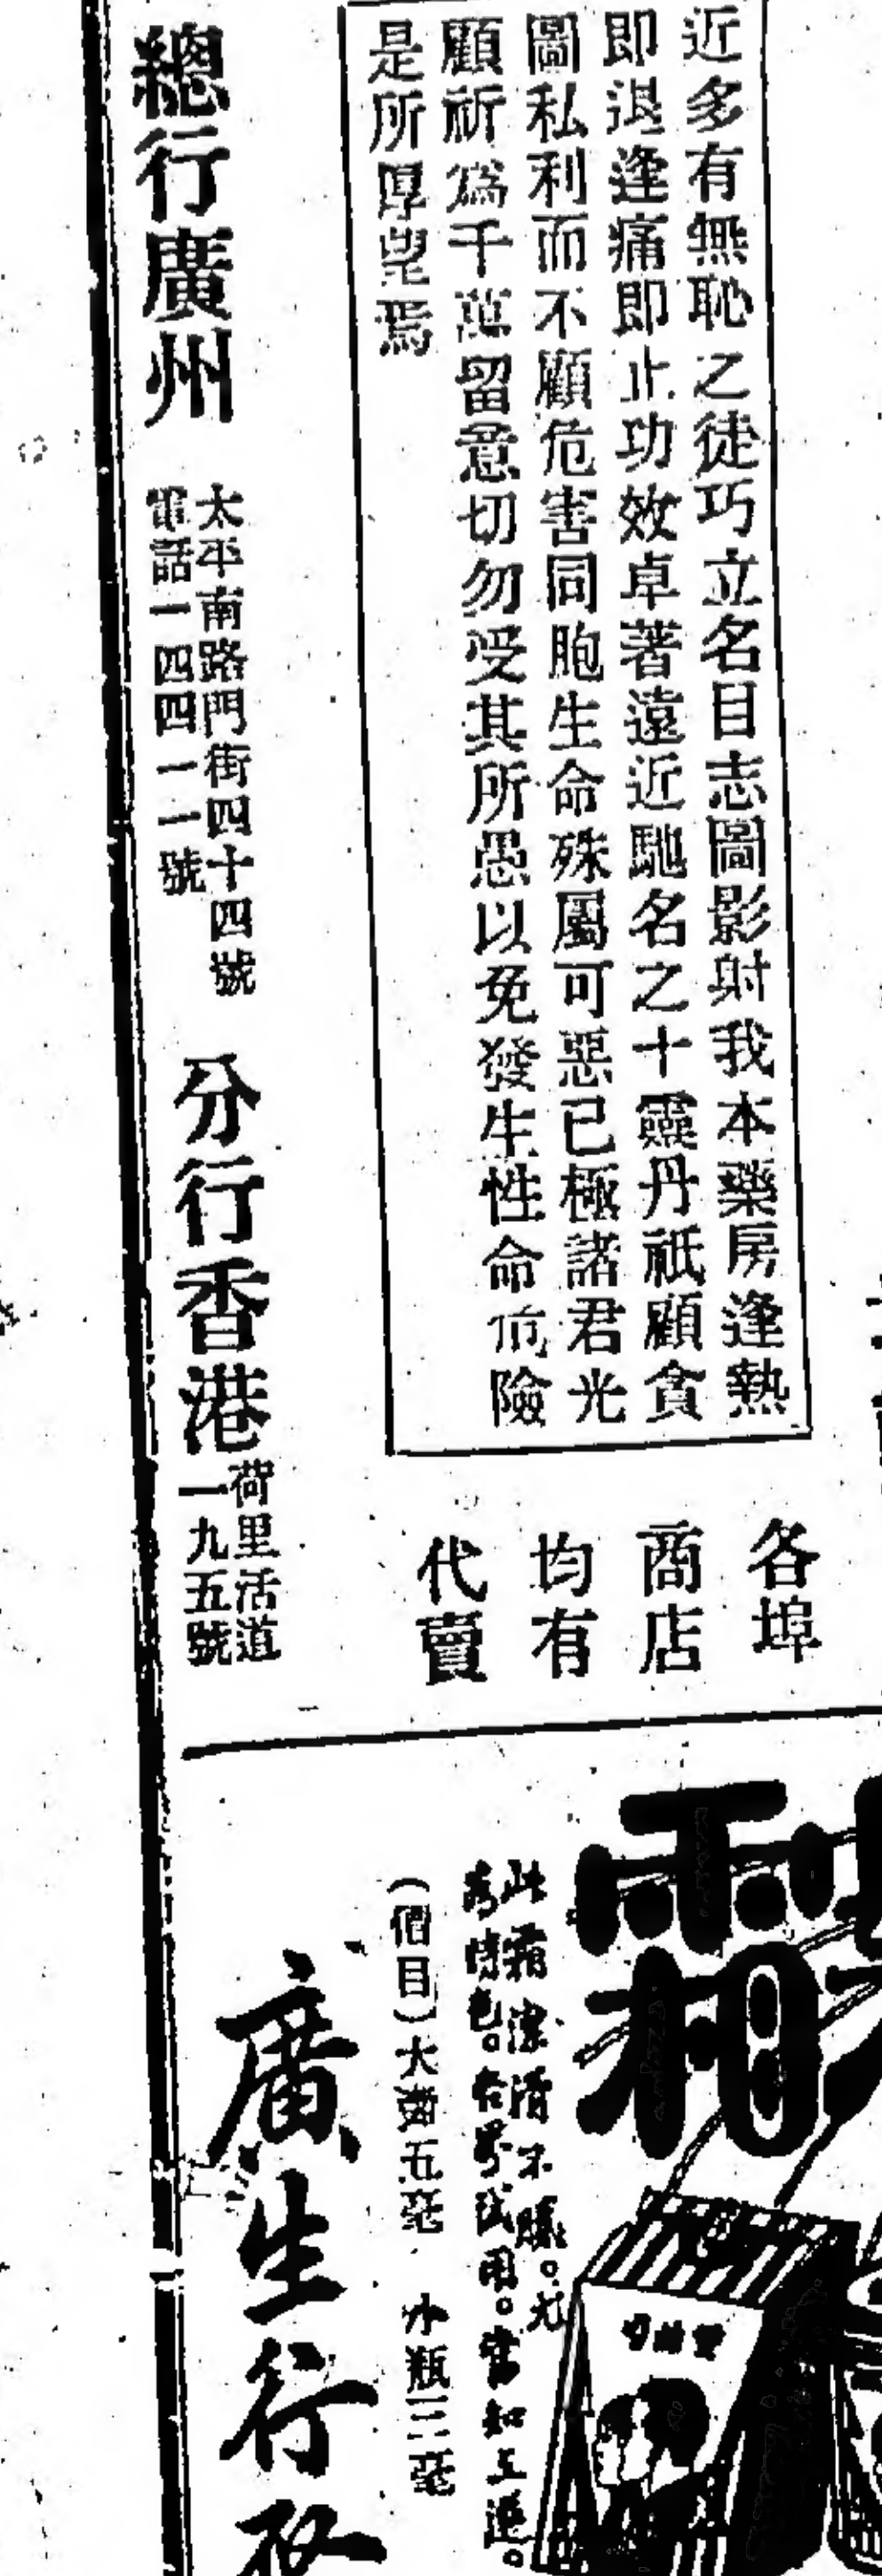 近多有無恥之徒巧立名目志圖影射我本藥房逢熱
即退逢痛即止功效卓著遠近馳名之十靈丹祇顧貪
圖私利而不顧危害同胞生命殊屬可惡已極諸君光
顧祈為千萬留意切勿受其所愚以免發生性命危險
是所厚望焉
各埠
商店
均有
代賣
總行廣州
太平南路門街四十四號
電話一四四一一號
分行香港
荷里活道
一九五號
霜
此霜潔滑不膩。尤
為特色。
試用。當知
(價目)大
五毫 小瓶三毫
廣生行